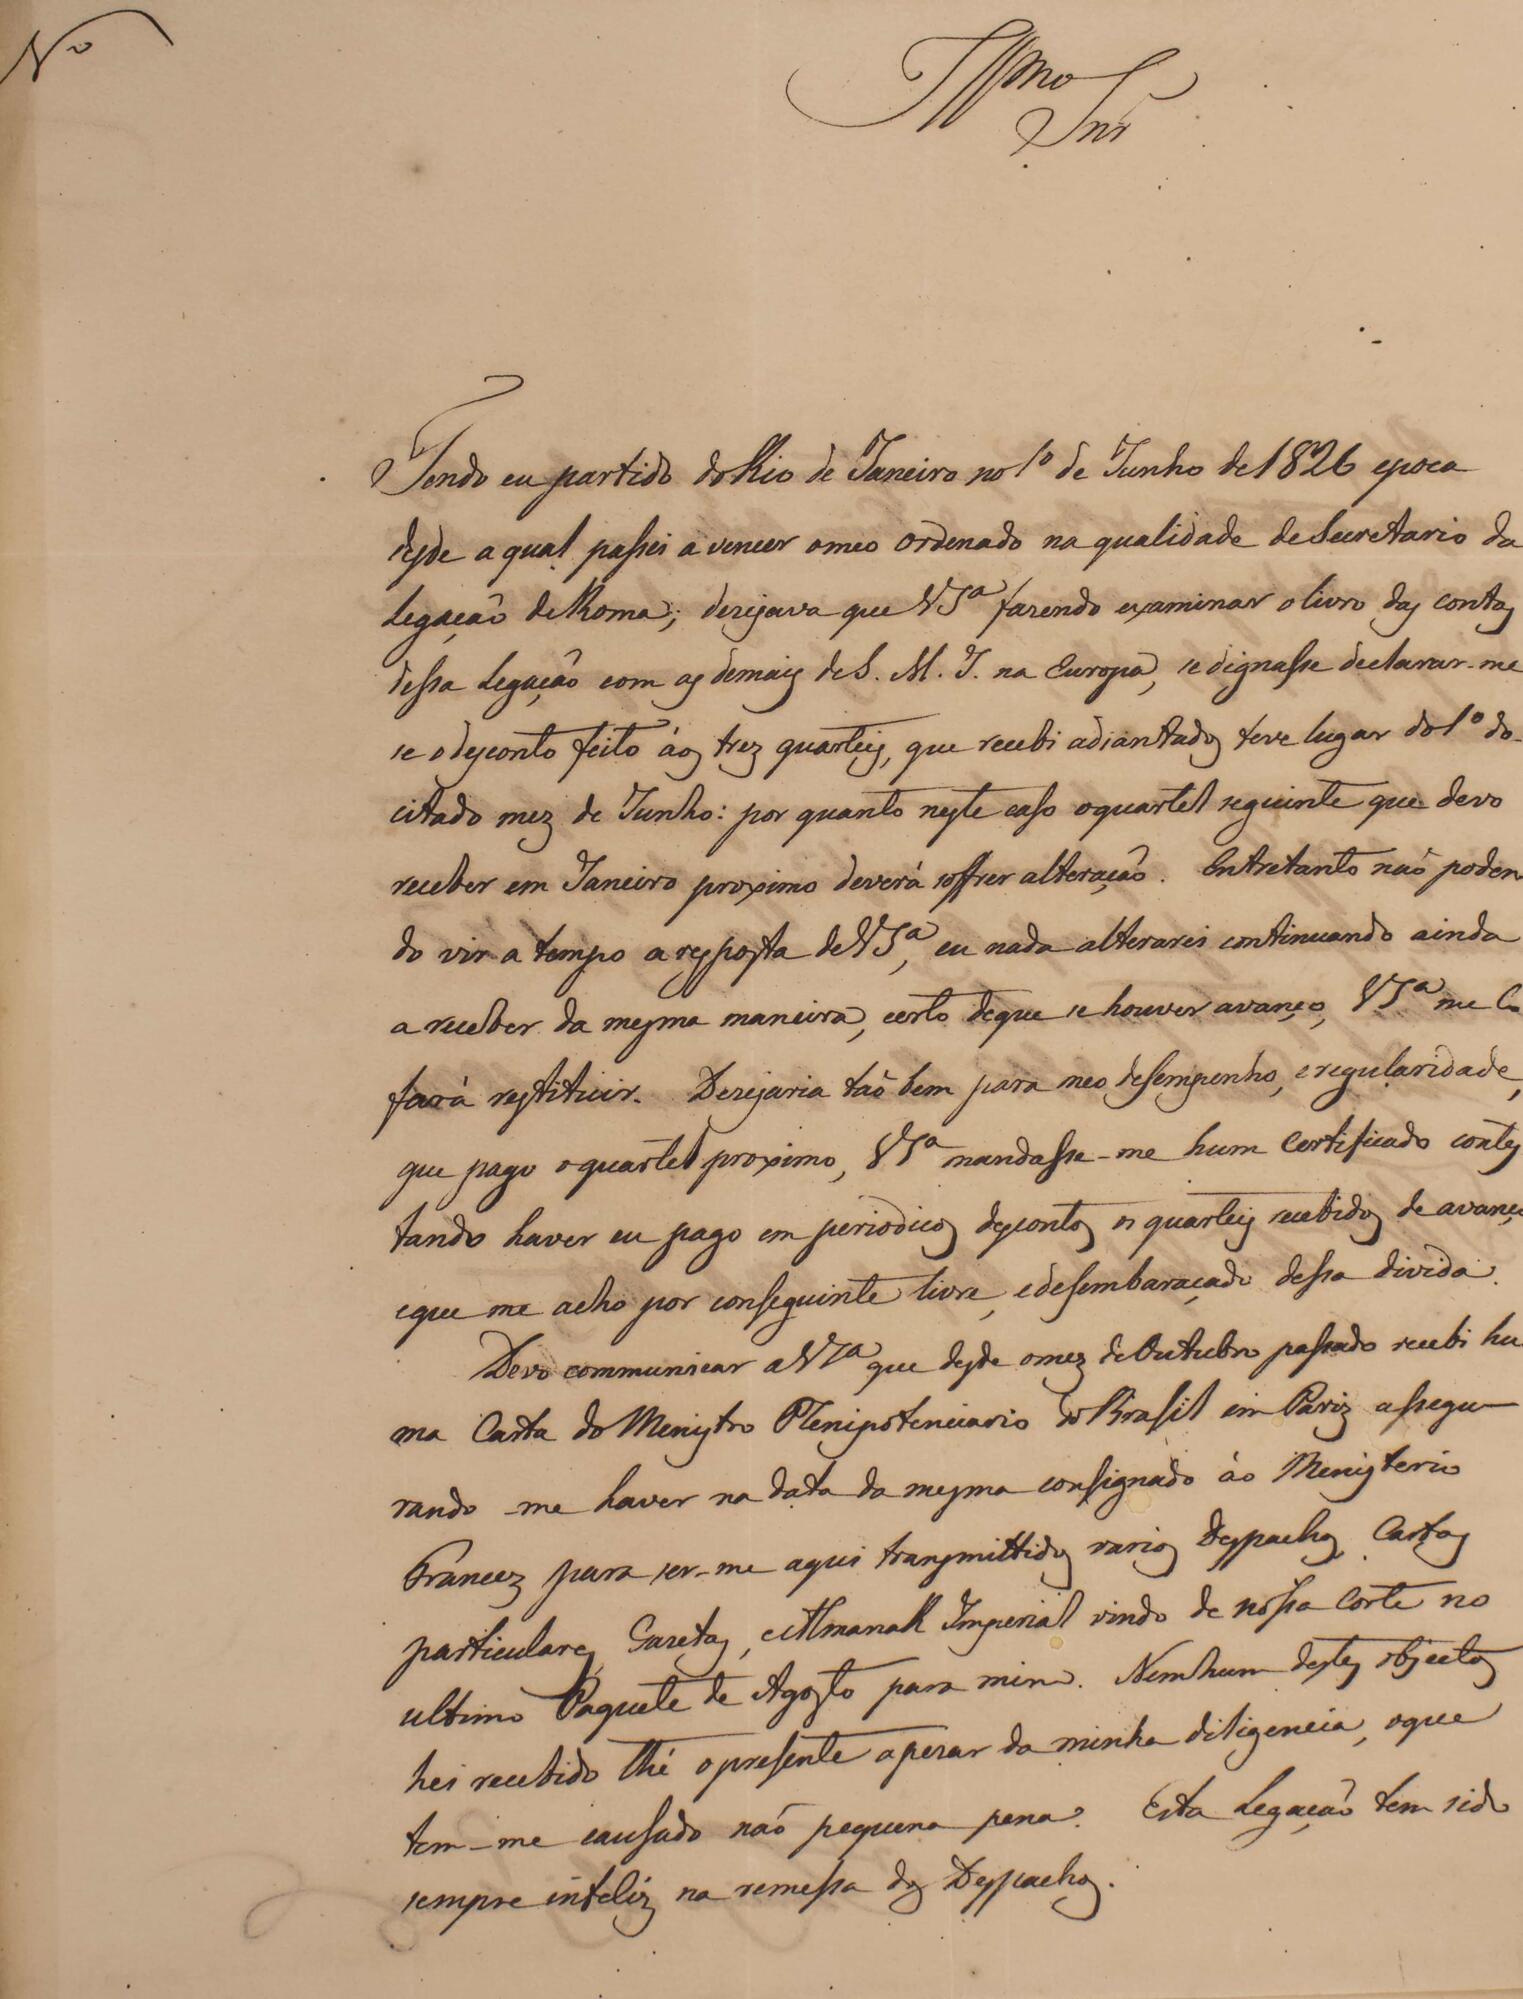 Nº
Illmo
Snr
Tendo eu partido do Rio de Janeiro no 1º de Junho de 1826 epoca
desde a qual passei a vencer o meo ordenado na qualidade de Secretario da
Legação de Roma; desejava que VSª fazendo examinar o livro das contas
dessa Legação com as demais de S. M. I. na Europa, se dignasse declarar-me
se o desconto feito áos trez quarteis, que recebi adiantados teve lugar do 1º do
citado mez de Junho: por quanto neste caso o quartel seguinte que devo
receber em Janeiro proximo deverá soffrer alteração. Entretanto não poden
do vir a tempo a resposta de VSª, eu nada alterarei continuando ainda
a receber da mesma maneira, certo de que se houver avanço, VSª me o
fará restituir. Desejaria tão bem para meo desempenho, e regularidade,
que pago o quartel proximo, VSª mandasse-me hum Certificado contes
tando haver eu pago em periodicos descontos os quarteis recebidos de avanço
e que me acho por conseguinte livre, e desembaraçado dessa divida.
Devo communicar a VSª que desde o mez de Outubro passado recebi hu
ma Carta do Menistro Plenipotenciario do Brasil em Pariz assegu
rando-me haver na data da mesma consignado áo Menisterio
Francez para ser-me aqui transmittidos varios Despachos, Cartas
particulares, Gazetas, e Almanak Imperial vindo de nossa Corte no
ultimo Paquete de Agosto para mim. Nemhum destes objectos
hei recebido thé o presente apezar da minha diligencia, o que
tem-me causado não pequena pena. Esta Legação tem sido
sempre infeliz na remessa dos Despachos.